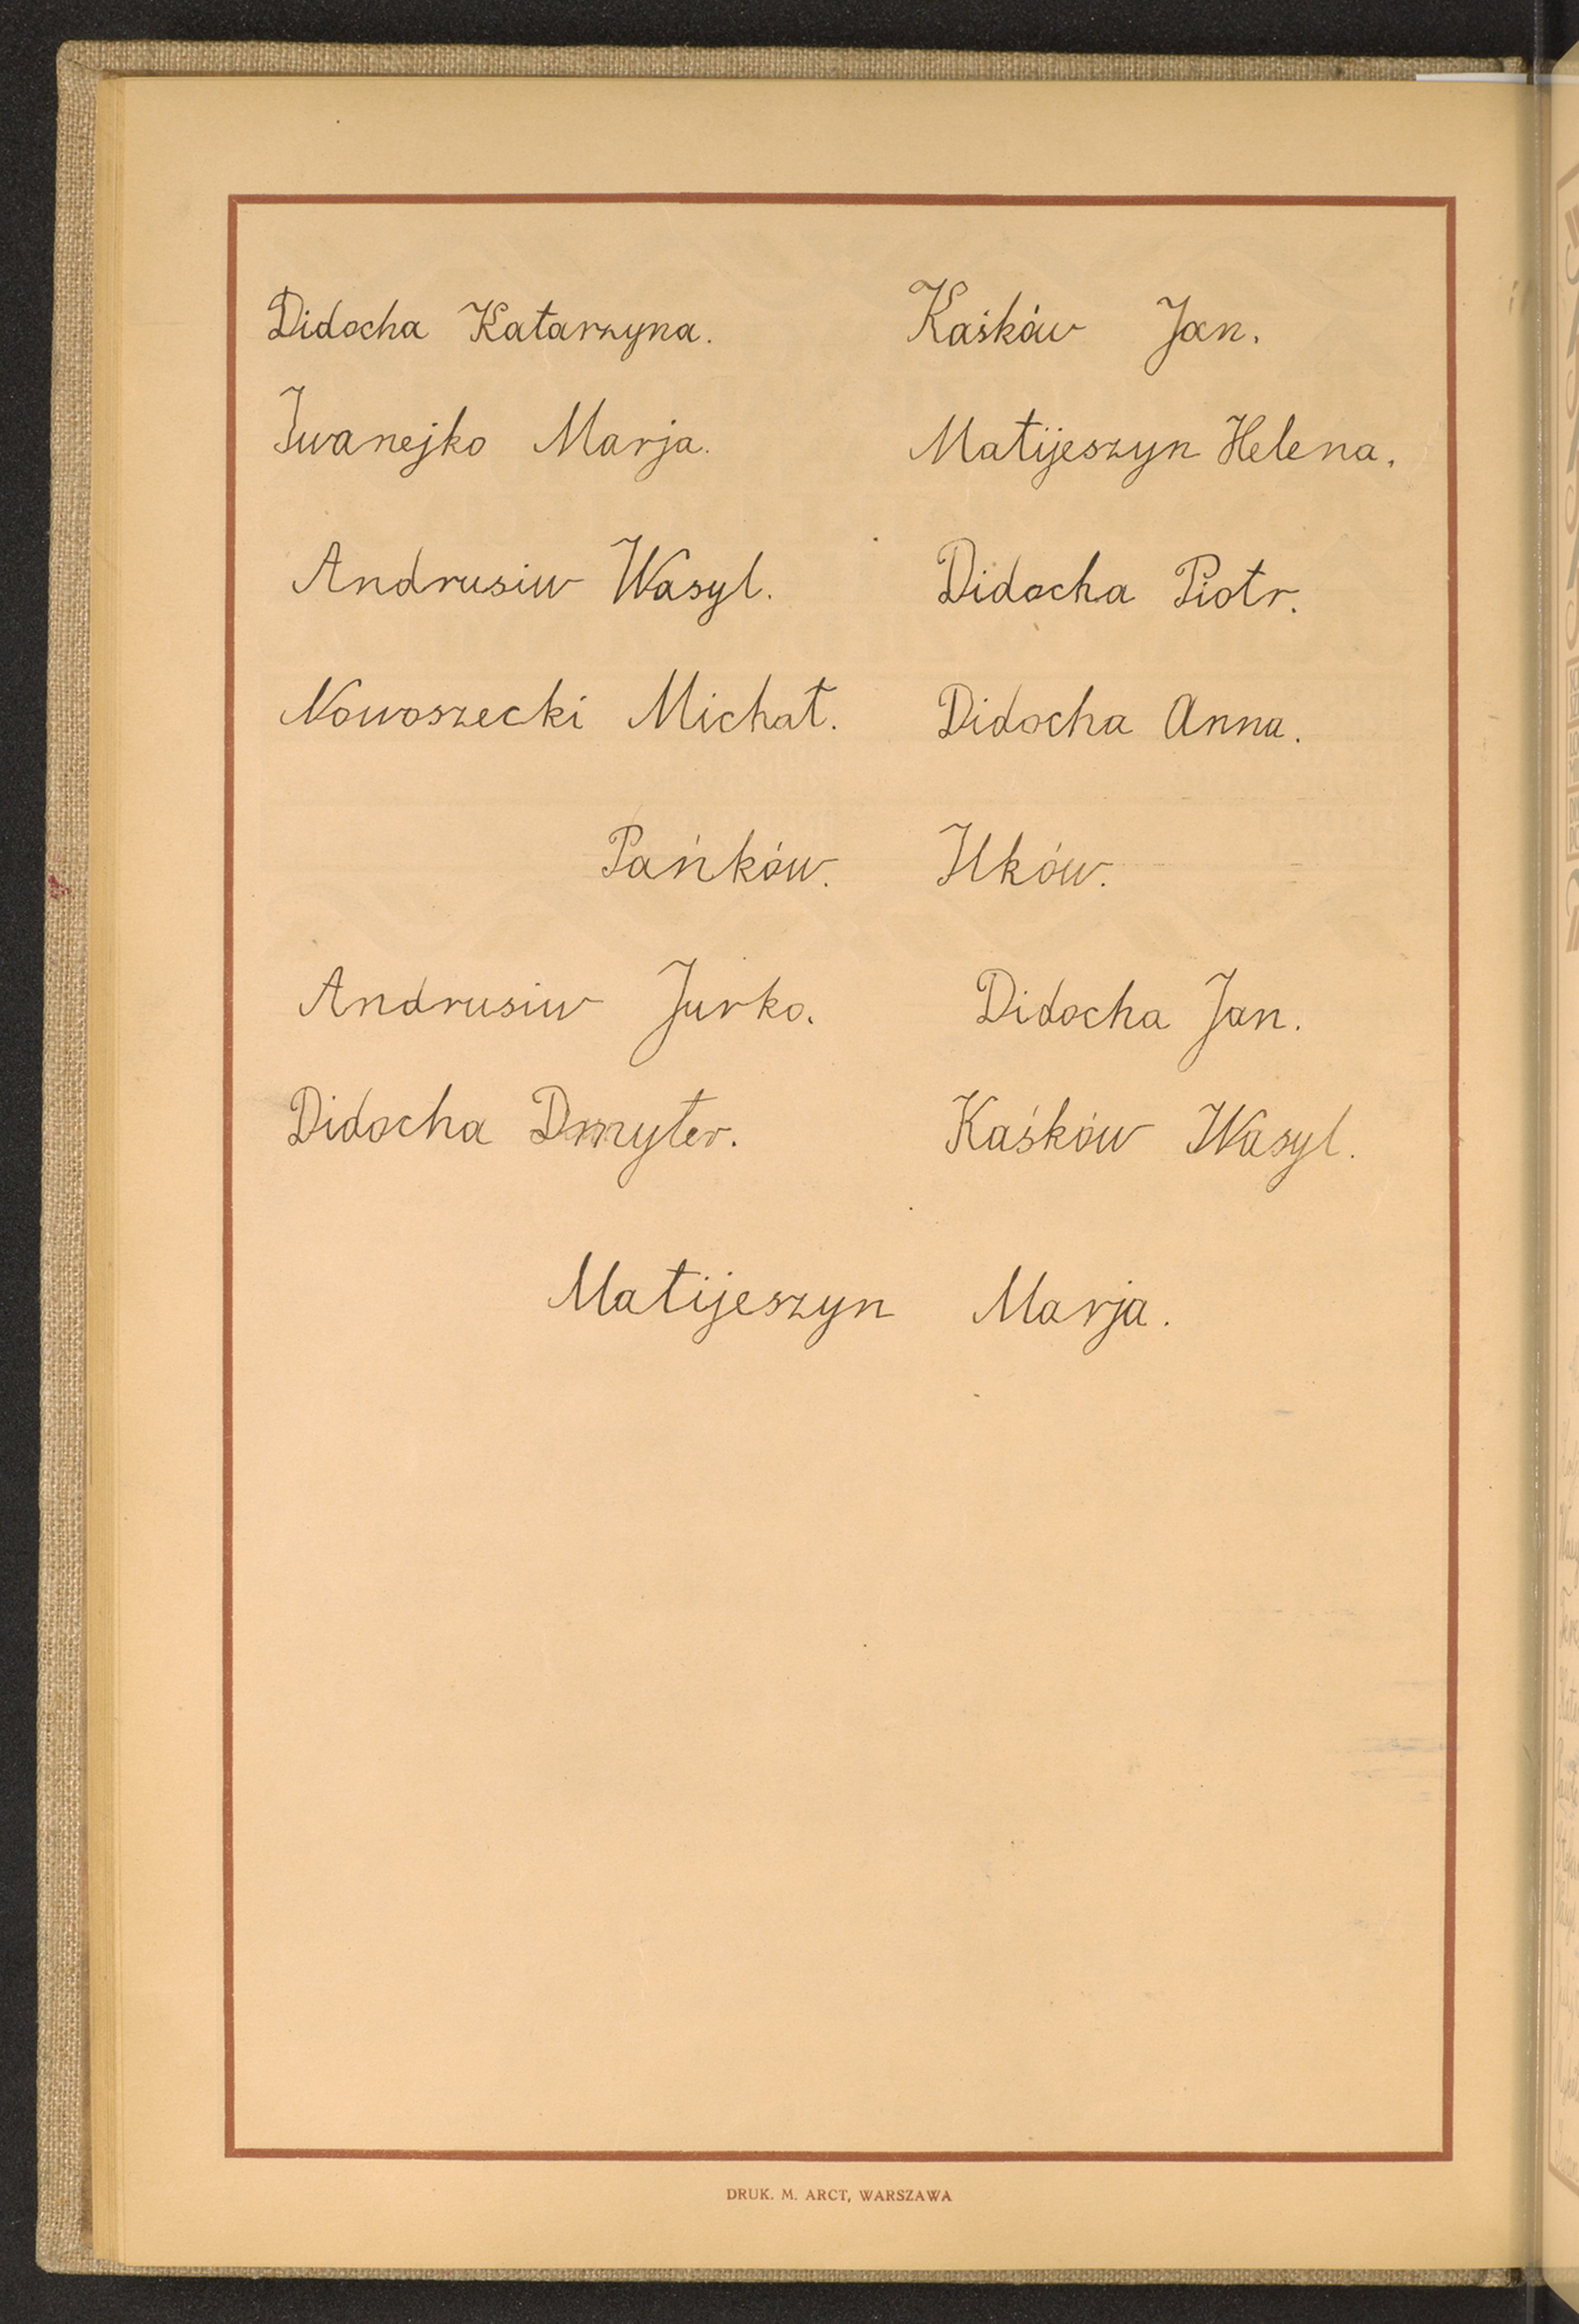 Didocha Katarzyna. Kaśków Jan.
Iwanejko Marja. Matijeszyn Helena.
Andrusiw Wasyl. Didocha Piotr.
Nowoszecki Michał. Didocha Anna.
Pańków. Ilków.
Andrusiw Jurko. Didocha Jan.
Didocha Dmyter. Kaśków Wasyl.
Matijeszyn Marja.
DRUK. M. ARCT, WARSZAWA